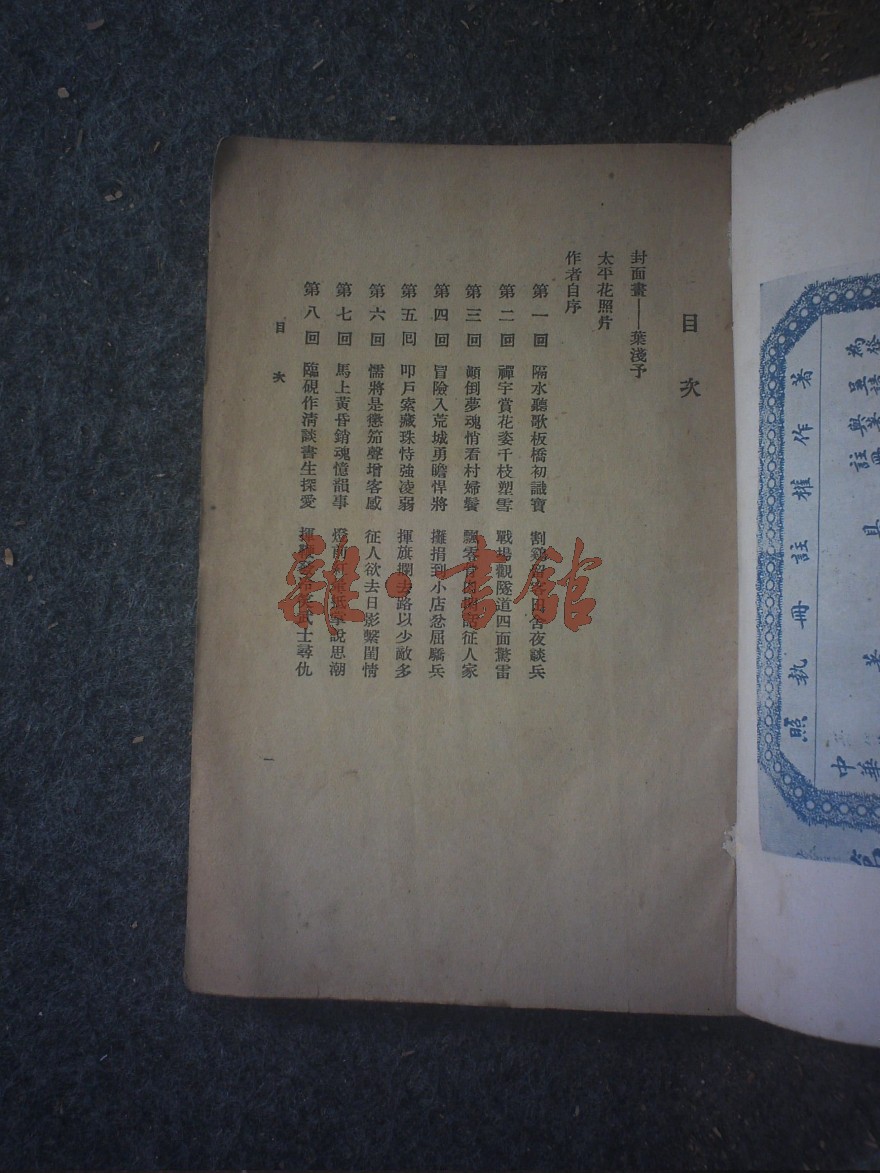 目次
封面畫——葉淺予
太平花照片
作者自序
第一回 隔水聽歌板橋初識寶 割鷄留客田舍夜談兵
第二回 禪宇賞花姿千枝塑雪 戰場觀隧道四面驚雷
第三回 顚倒夢魂悄看村婦鬢 飄零骨肉 征人家
第四回 冒險入荒城勇瞻悍將 攤捐到小店忿屈驕兵
第五回 叩戶索藏珠恃強凌弱 揮旗攔去路以少敵多
第六回 懦將是懲笳聲增客感 征人欲去日影繫閨情
第七回 馬上黃昏銷魂憶韻事 燈前 抵掌說思潮
第八回 臨硯作淸談書生探愛 揮 武士尋仇
目次
一
雜·書館
著作權註冊執照
中華